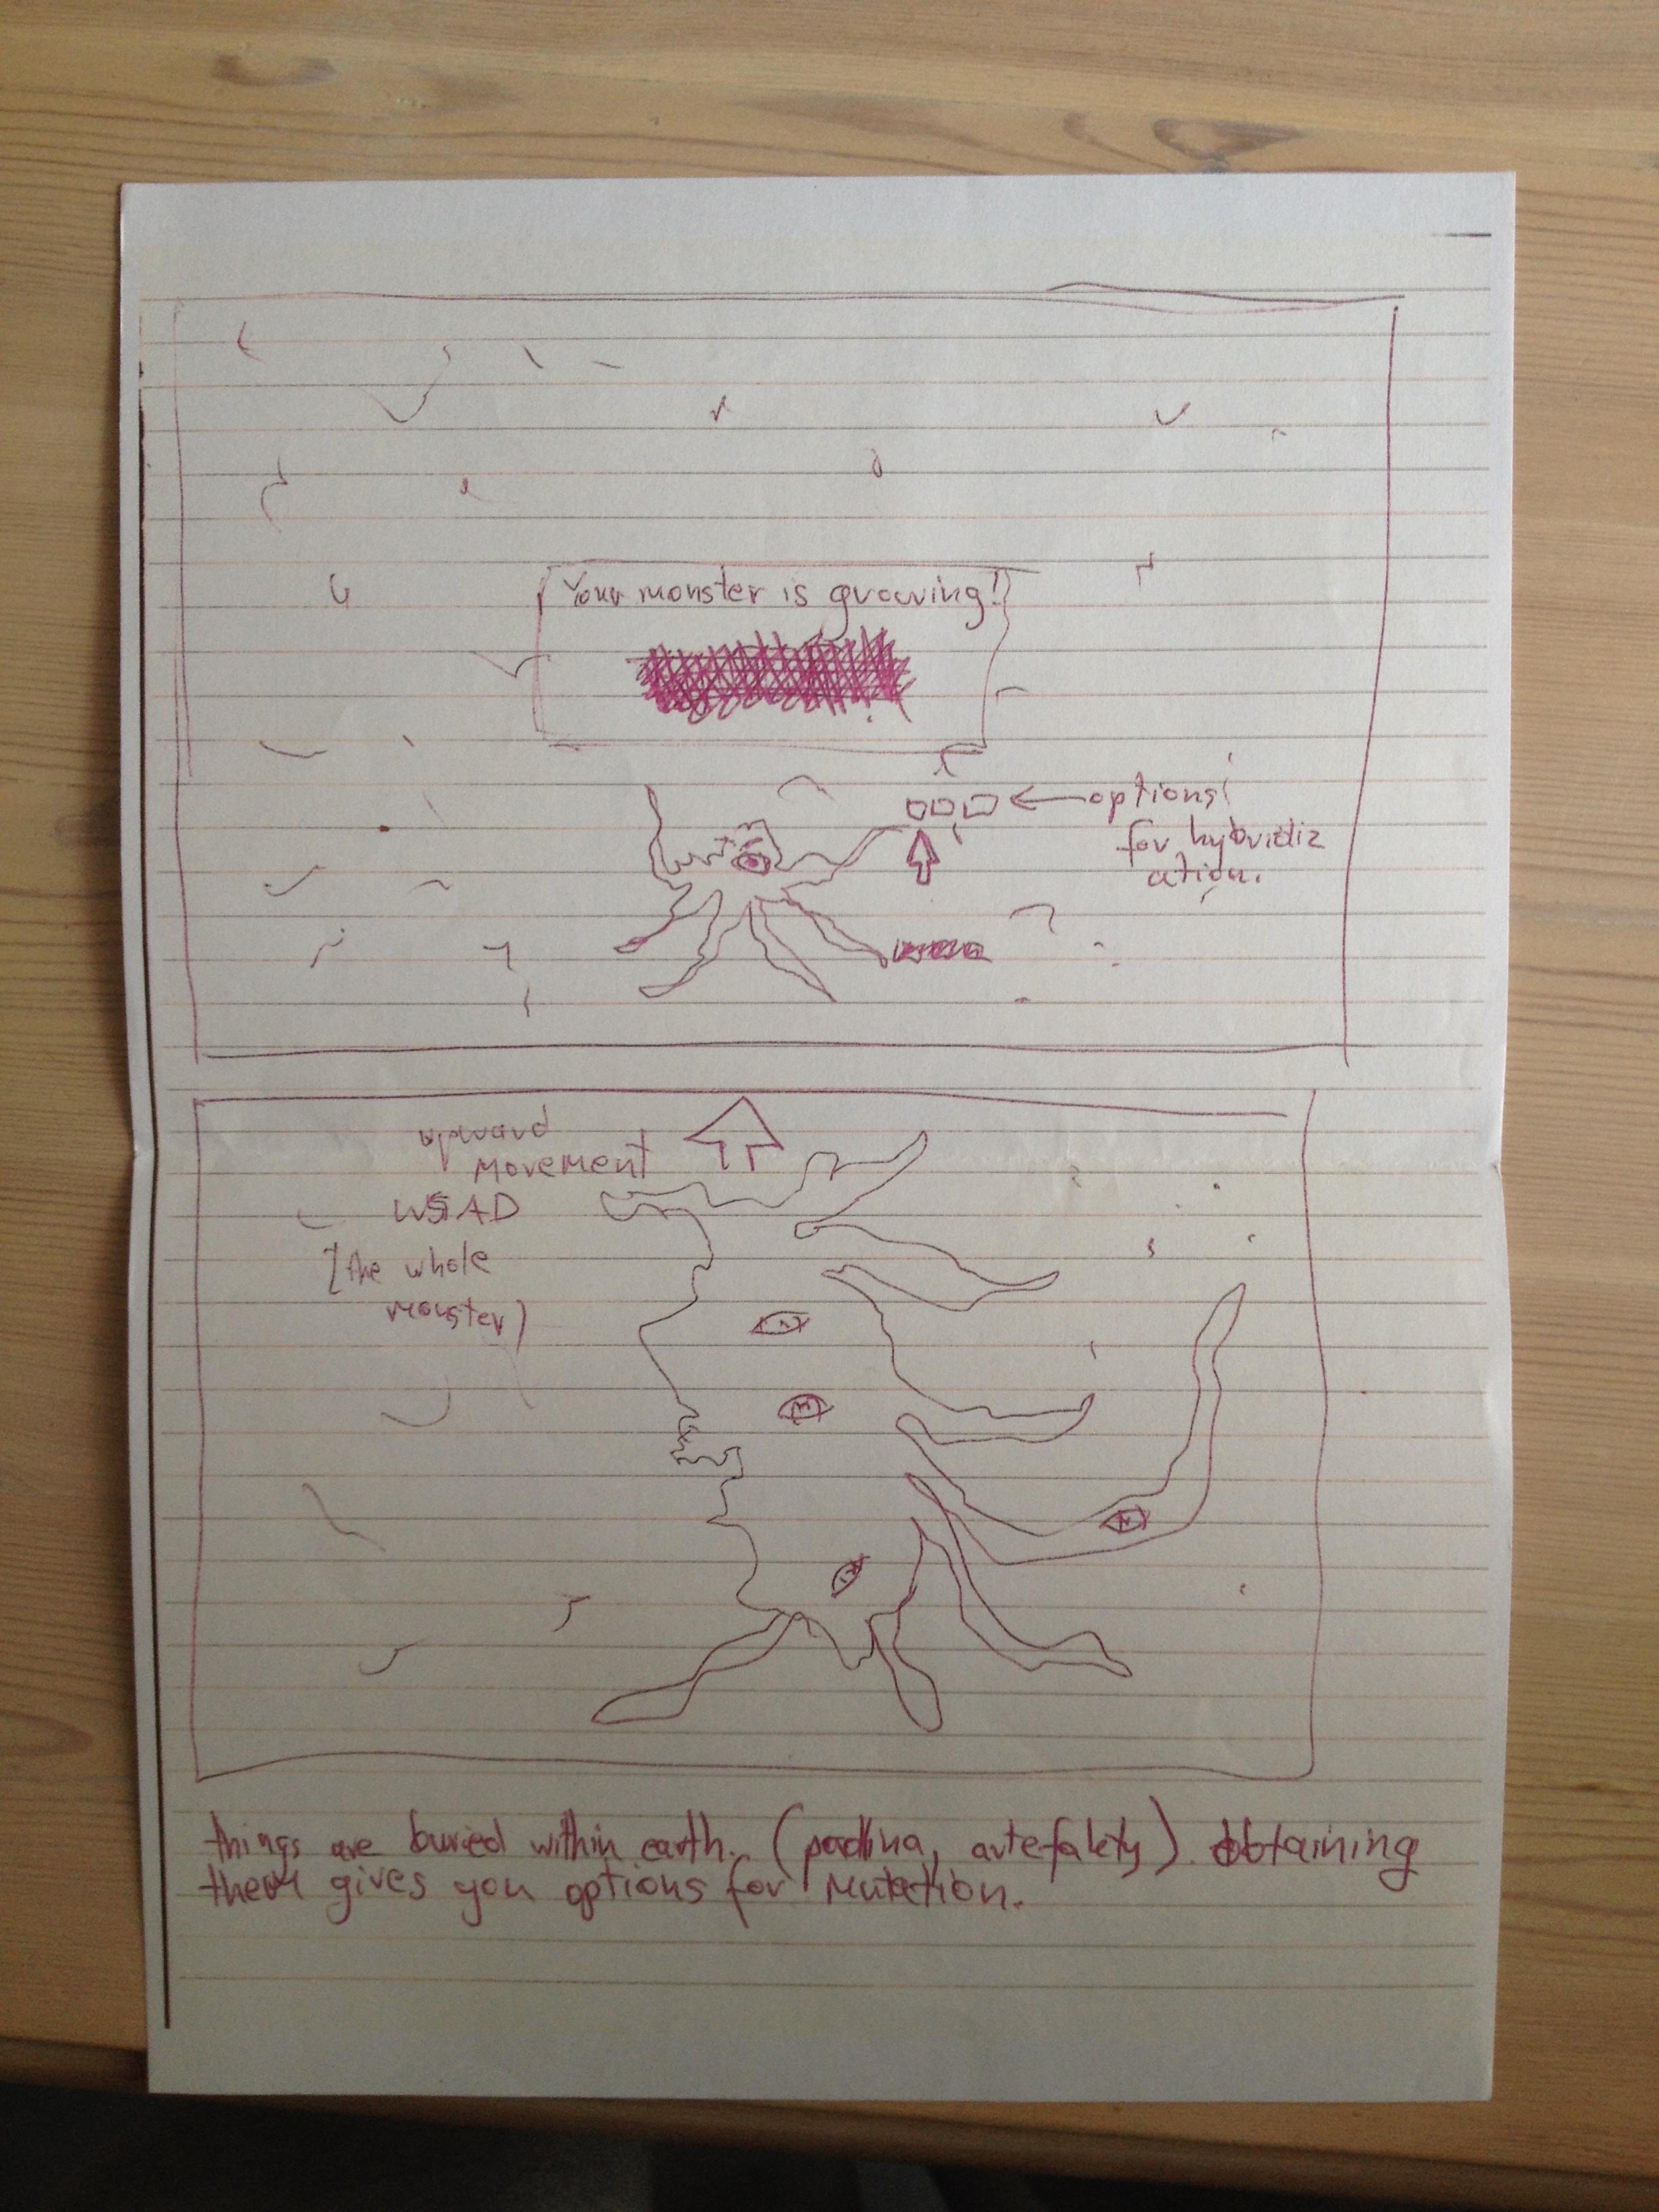 Your monster is growing!
options
for hybridiz
ation.
upward
movement
WSAD
(the whole
monster)
things are buried within earth. (padlina, artefakty). Obtaining
them gives you options for mutation.